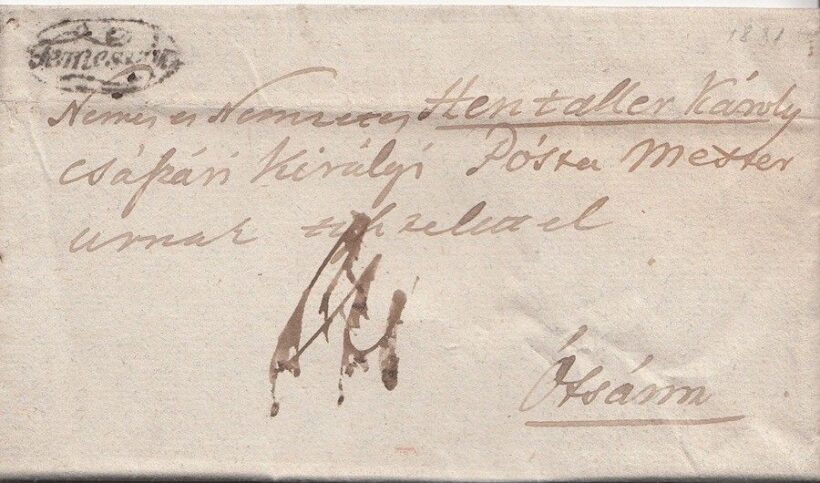 1831
Temesvar
Nemes és Nemzetes Hentaller Károly
császári Királyi Pósta Mester
úrnak tisztelettel
Ótsánn